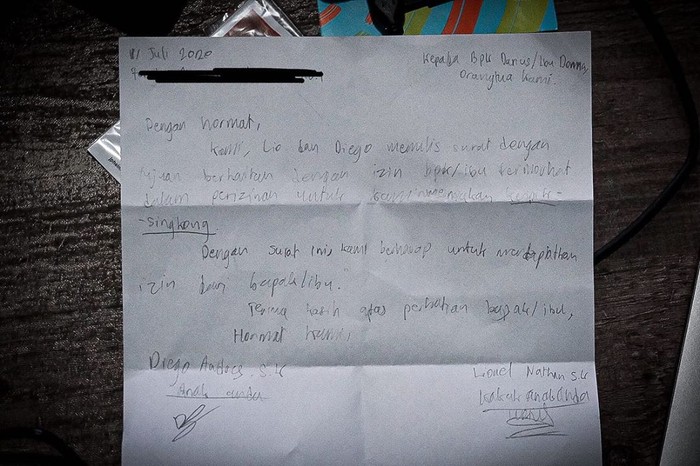 11 Juli 2020
Kepada Bpk Darius/Ibu Donna,
Orangtua Kami
Dengan hormat,
Kami, Lio dan Diego menulis surat dengan
tujuan berkaitan dengan izin bpk/ibu terhormat
dalam perizinan untuk kami memakan kripik-
-singkong
Dengan surat ini, kami berharap untuk mendapatkan
izin dari bapak/ibu.
Terima kasih atas perhatian bapak/ibu,
Hormat kami,
Diego Andres. S.K
Anak anda
Lionel Nathan S.K
Kakak anak anda